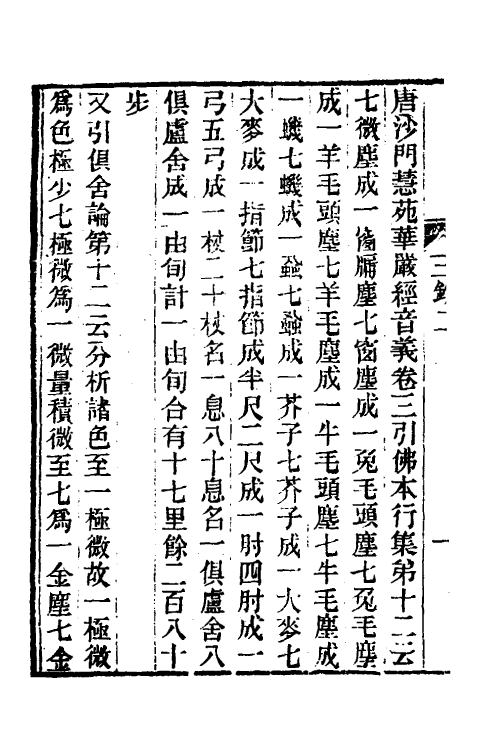 唐沙門慧苑華嚴經音義卷三引佛本行集第十二云
七微塵成一窗牖塵七窗塵成一兔毛頭塵七兔毛塵
成一羊毛頭塵七羊毛塵成一牛毛頭塵七牛毛塵成
一蟣七蟣成一蝨七蝨成一芥子七芥子成一大麥七
大麥成一指節七指節成半尺二尺成一肘四肘成一
弓五弓成一杖二十杖名一息八十息名一俱盧舍八
俱盧舍成一由旬計一由旬合有十七里餘二百八十
步
又引俱舍論第十二云分析諸色至一極微故一極微
爲色極少七極微爲一微量積微至七爲一金塵七金